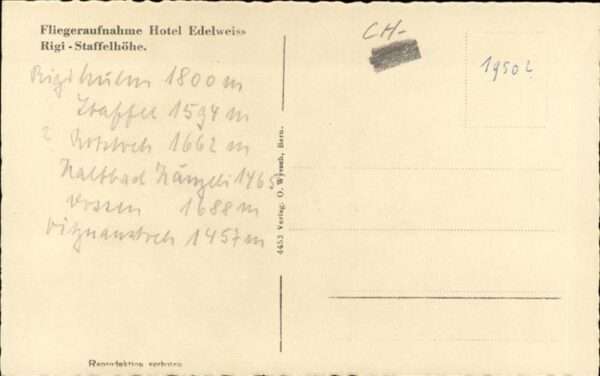 Fliegeraufnahme Hotel Edelweiss
Rigi - Staffelhöhe.
CH-
1950
Rigikulm 1800 m
Staffel 1594 m
Rotstock 1662 m
Kaltbad Känzeli 1465
Dossen 1688 m
Vitznauerstock 1457 m
4453 Verlag. O. Wyrsch, Bern.
Reproduktion verboten